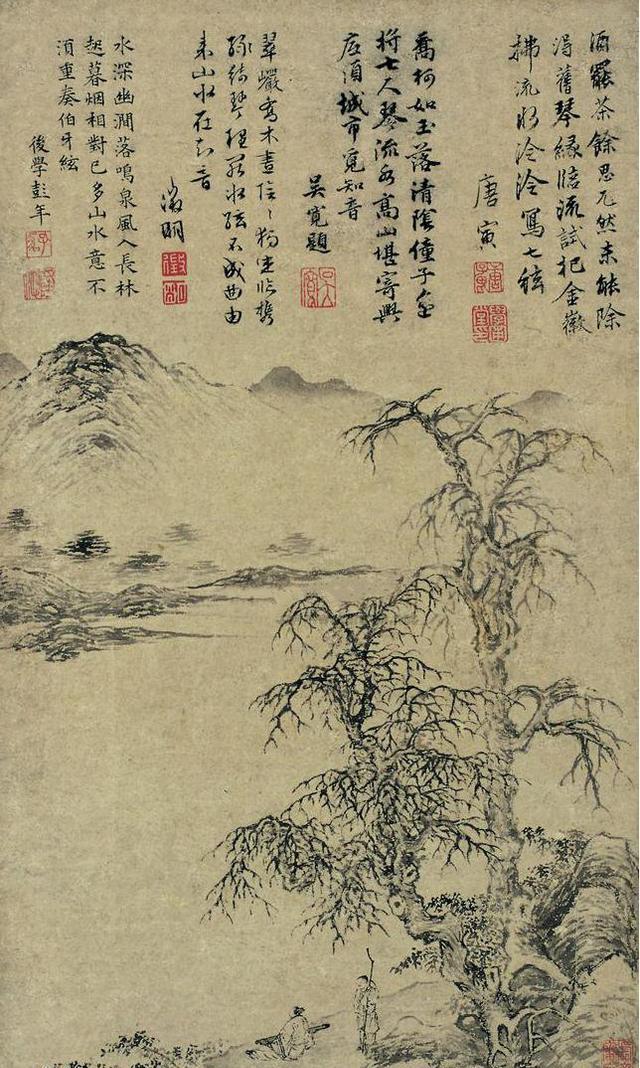 酒罷茶餘思兀然未能除
得舊琴緣臨流試把金徽
拂流水泠泠寫七絃
唐寅
喬柯如玉落清陰僮子
將七尺琴流水高山堪寄興
應須城市覓知音
吳寬題
翠巖喬木晝陰陰獨坐攜
綠綺琴冰絃不成曲由
來山水在知音
徵明
徵明
水深幽澗落鳴泉風入長林
起暮烟相對已多山水意不
須重奏伯牙絃
後學彭年